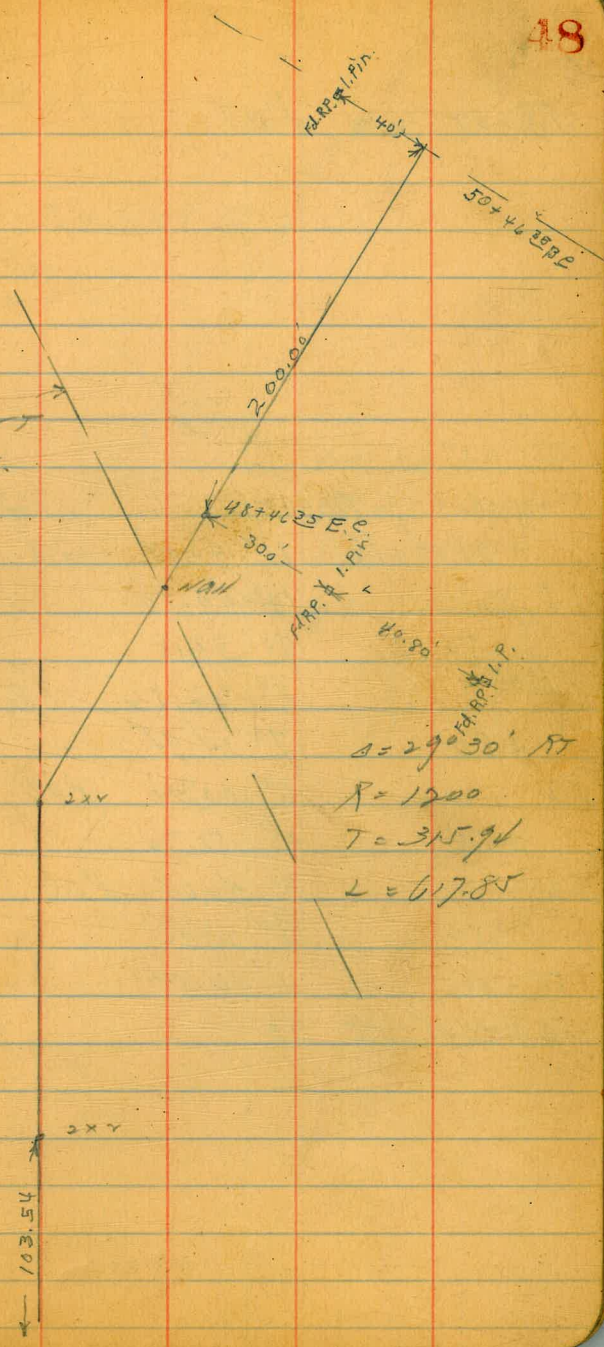 48
Fd. R.P. I. Pin.
40'
50+46 38 B.C.
200.00'
48+46 35 E.C.
30.0'
Fd. R.P. I. Pin.
Nail
40.80'
Fd. R.P. I.P.
Δ = 29° 30' RT
R = 1200
2x2
T = 315.94
L = 617.85
2x2
103.54